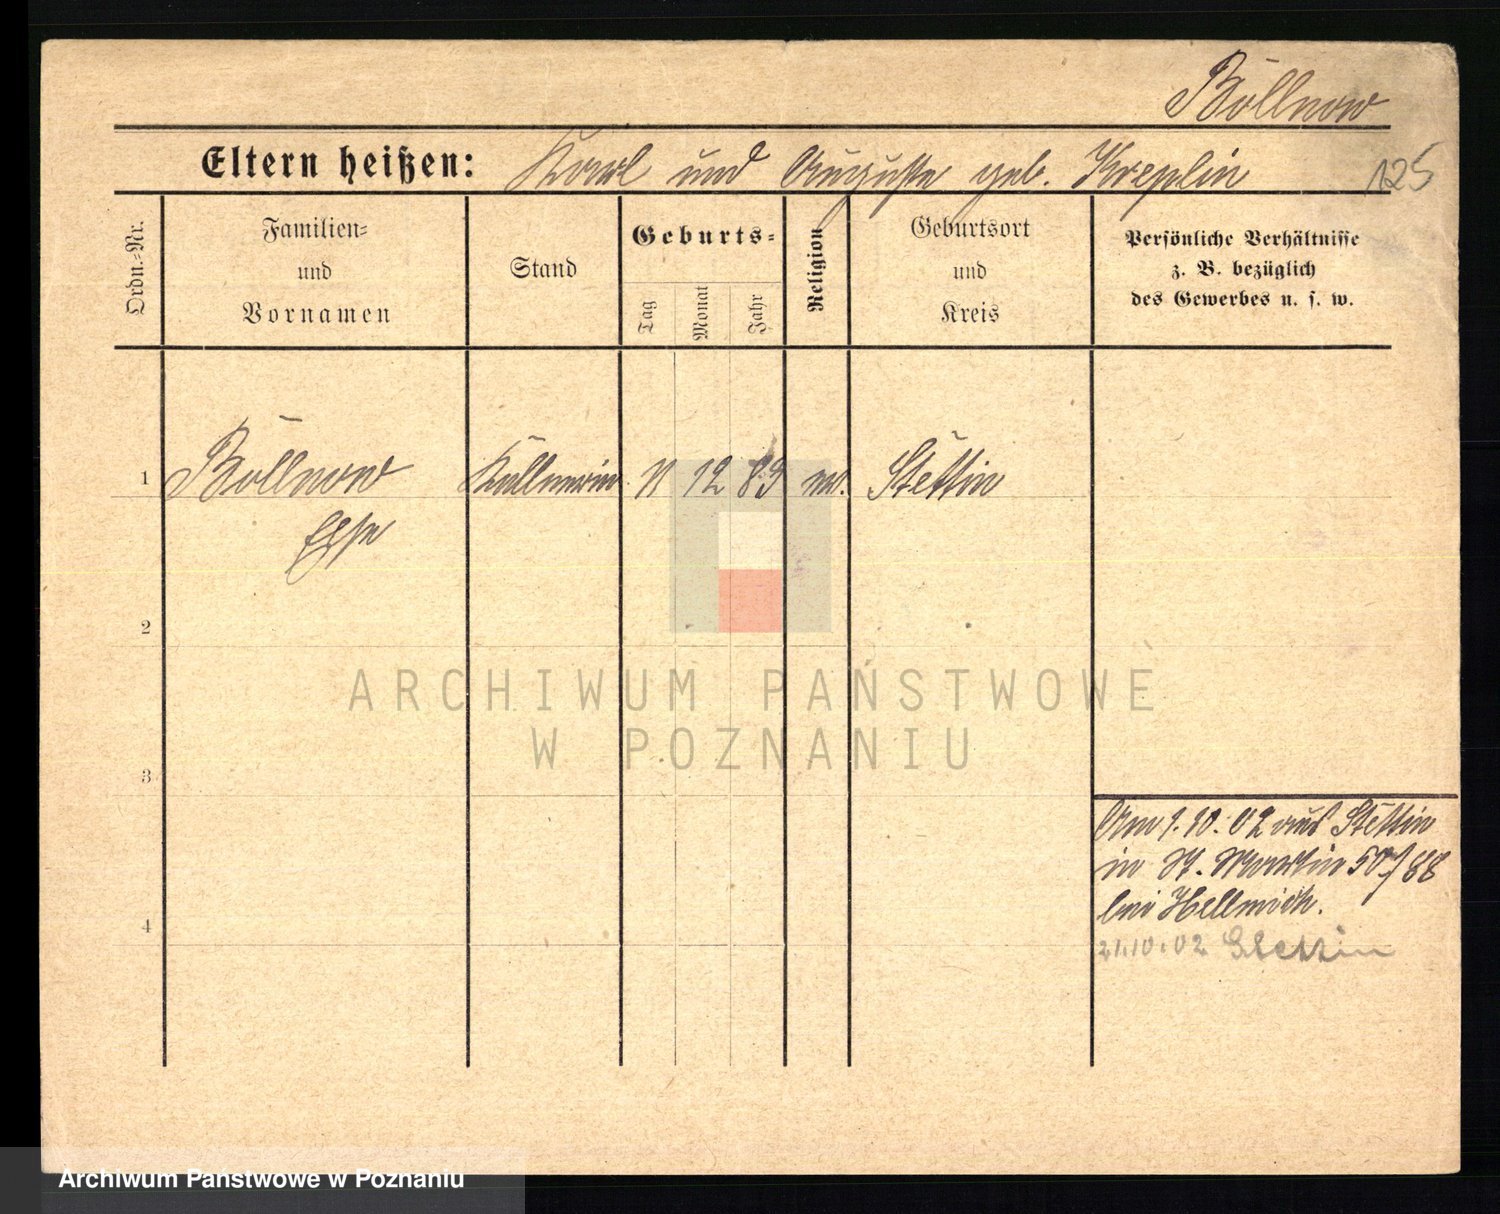 Böllnow
Eltern heißen: Karl und Auguste geb. Kreplin
125
Ordn.-Nr.
Familien-
und
Vornamen
Stand
Geburts-
Tag
Monat
Jahr
Religion
Geburtsort
und
Kreis
Persönliche Verhältnisse
z. B. bezüglich
des Gewerbes u. s. w.
1 Böllnow Kellnerin 11 12 83 ev. Stettin
Else
2
ARCHIWUM PAŃSTWOWE
W POZNANIU
3
Am 1.10.02 aus Stettin
in St. Martin 50/88
bei Hellmich.
4
21.10.02 Stettin
Archiwum Państwowe w Poznaniu